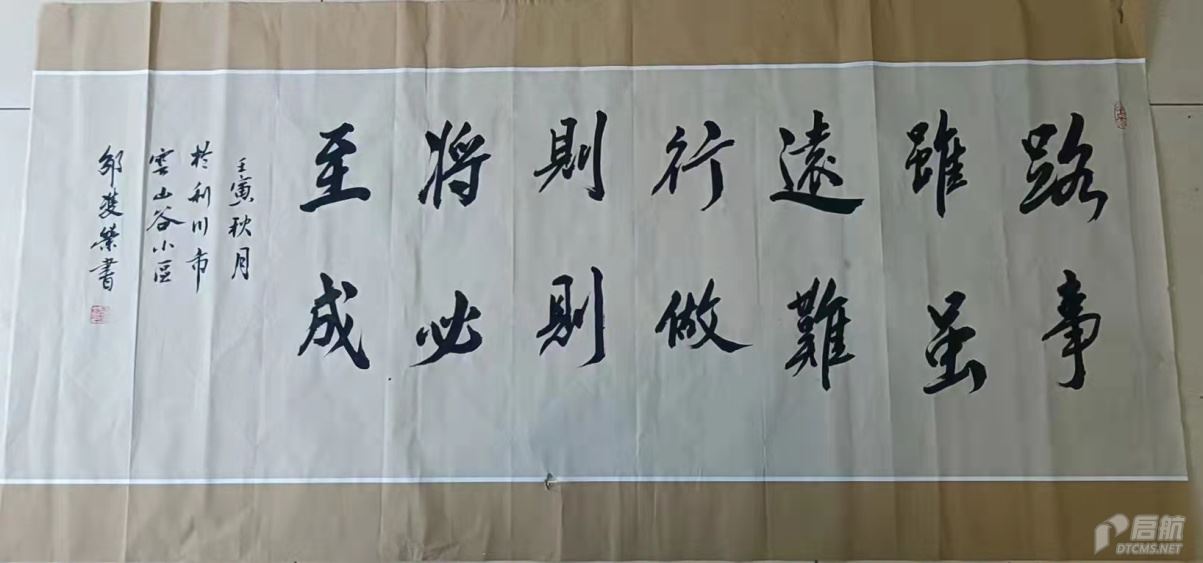 路雖遠行則将至
事虽難做則必成
壬寅秋月
於利川市
雲山谷小區
邹雙榮書
启航
DTCMS.NET